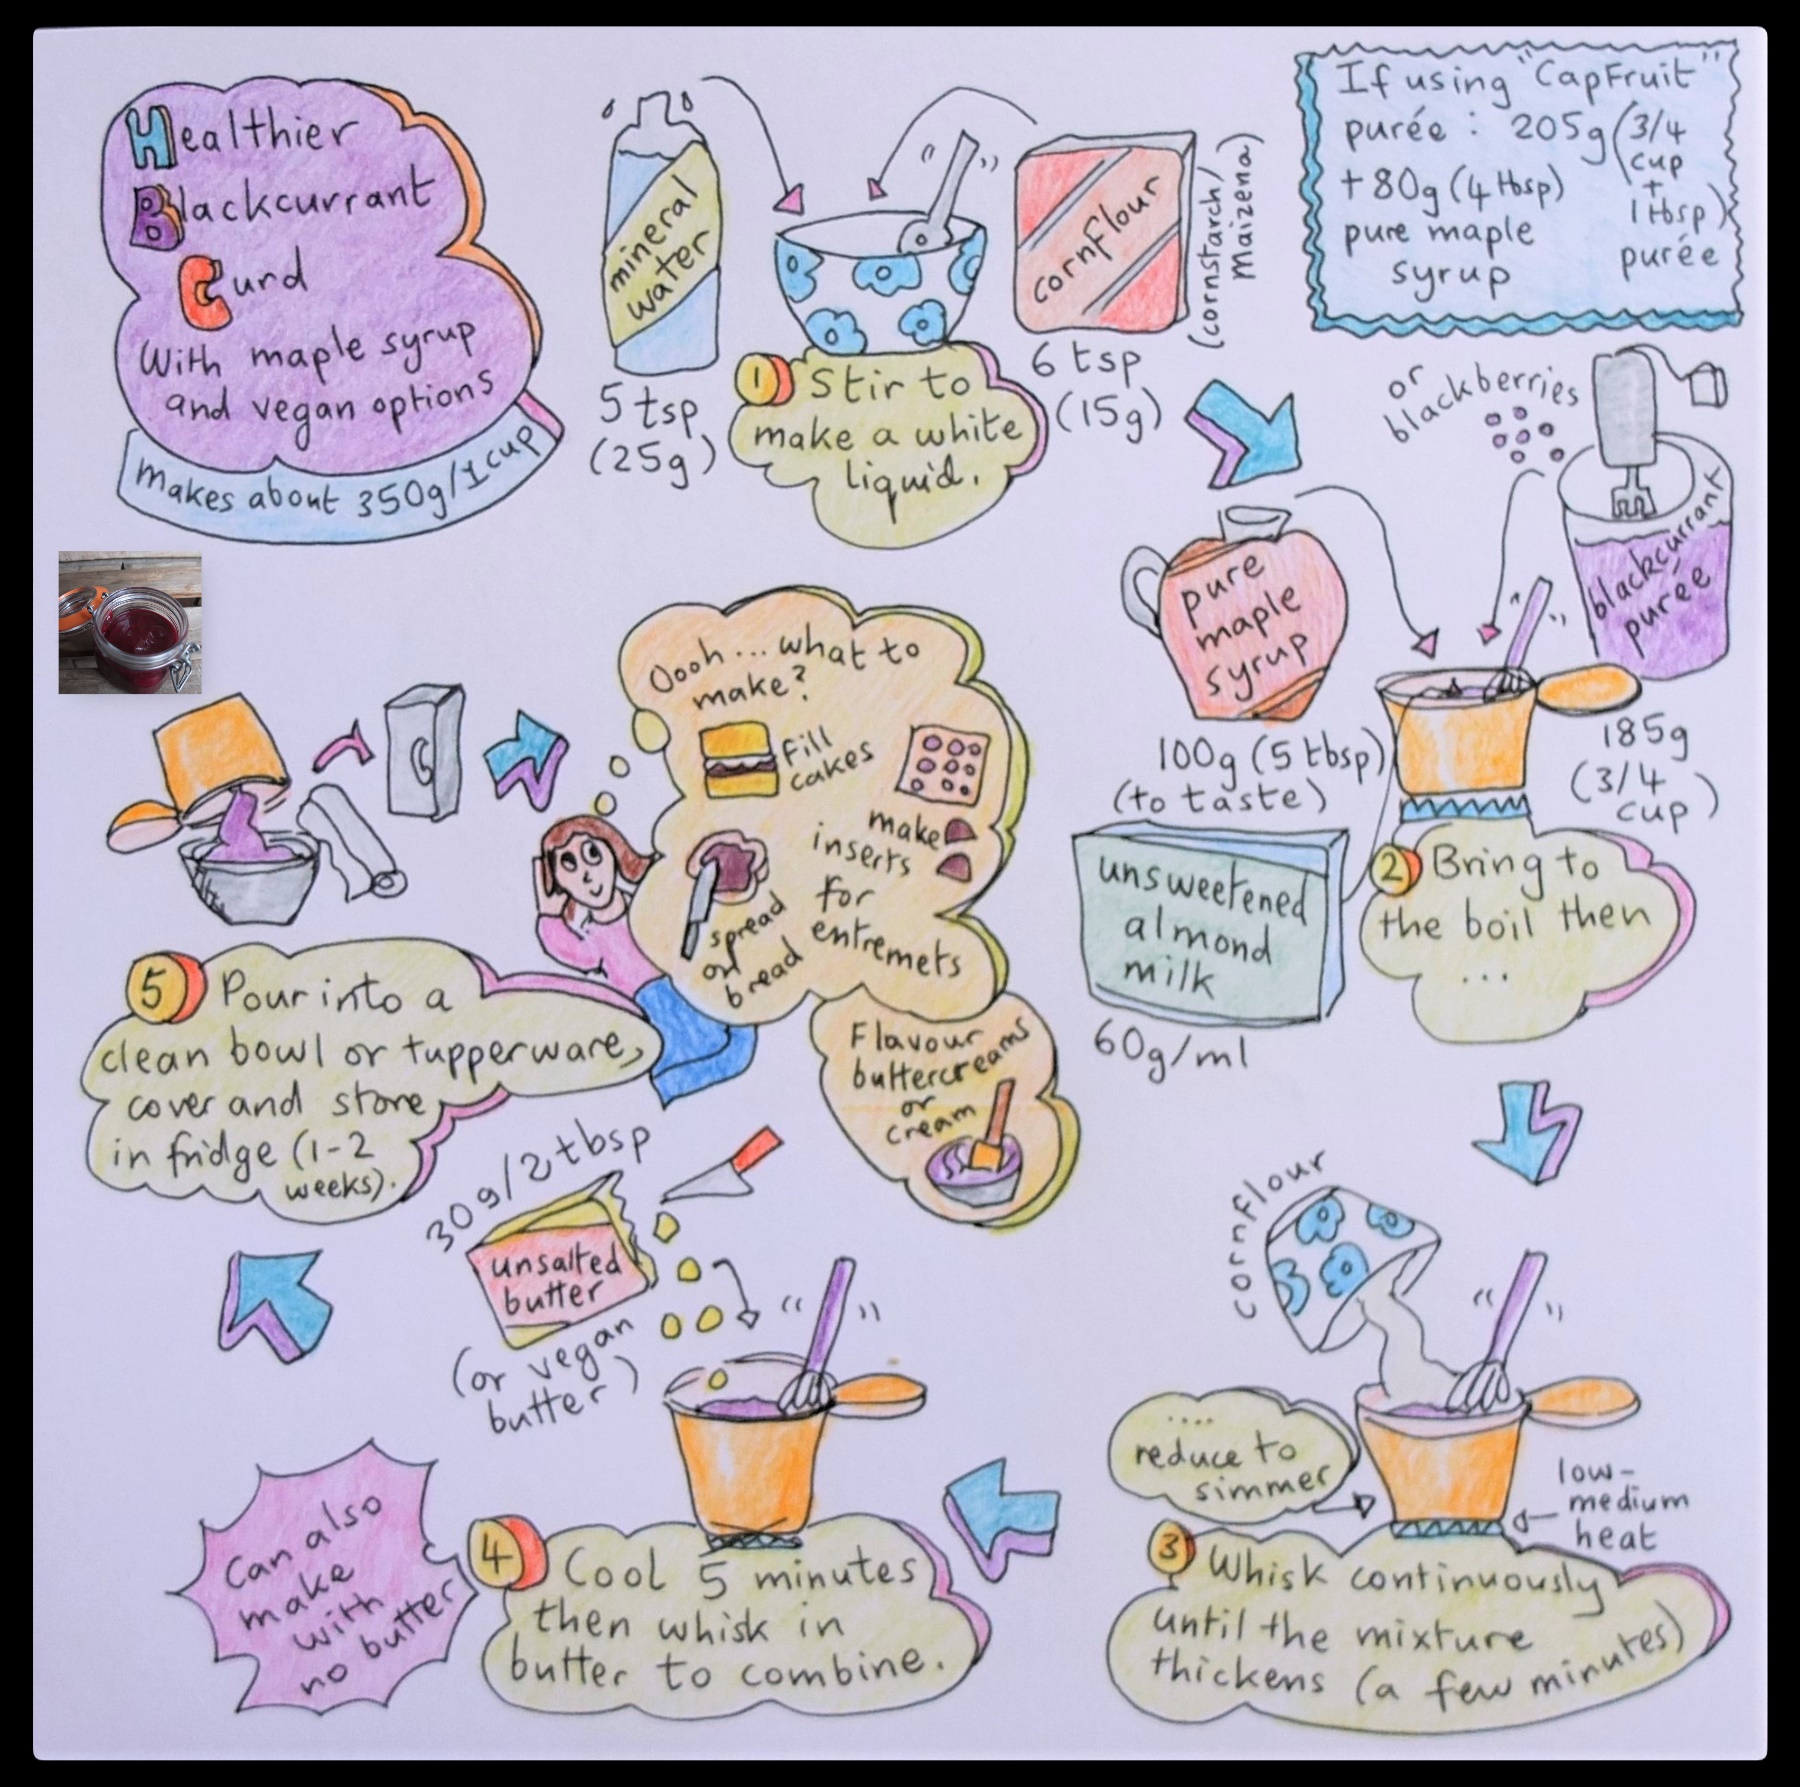 Healthier
Blackcurrant
Curd
With maple syrup
and vegan options
makes about 350g/1cup
mineral
water
5 tsp
(25g)
cornflour
(cornstarch/
maizena)
6 tsp
(15g)
1 Stir to
make a white
liquid.
If using "CapFruit"
purée : 205g (3/4
cup
+
1 tbsp)
purée
+ 80g (4 tbsp)
pure maple
syrup
or
blackberries
blackcurrant
purée
185g
(3/4
cup)
pure
maple
syrup
100g (5 tbsp)
(to taste)
unsweetened
almond
milk
60g/ml
2 Bring to
the boil then
...
cornflour
....
reduce to
simmer
low-
medium
heat
3 Whisk continuously
until the mixture
thickens (a few minutes)
30g/2 tbsp
unsalted
butter
(or vegan
butter)
4 Cool 5 minutes
then whisk in
butter to combine.
Can also
make
with
no butter
5 Pour into a
clean bowl or tupperware,
cover and store
in fridge (1-2
weeks).
Oooh...what to
make?
fill
cakes
make
inserts
for
entremets
spread
on
bread
Flavour
buttercreams
or
cream